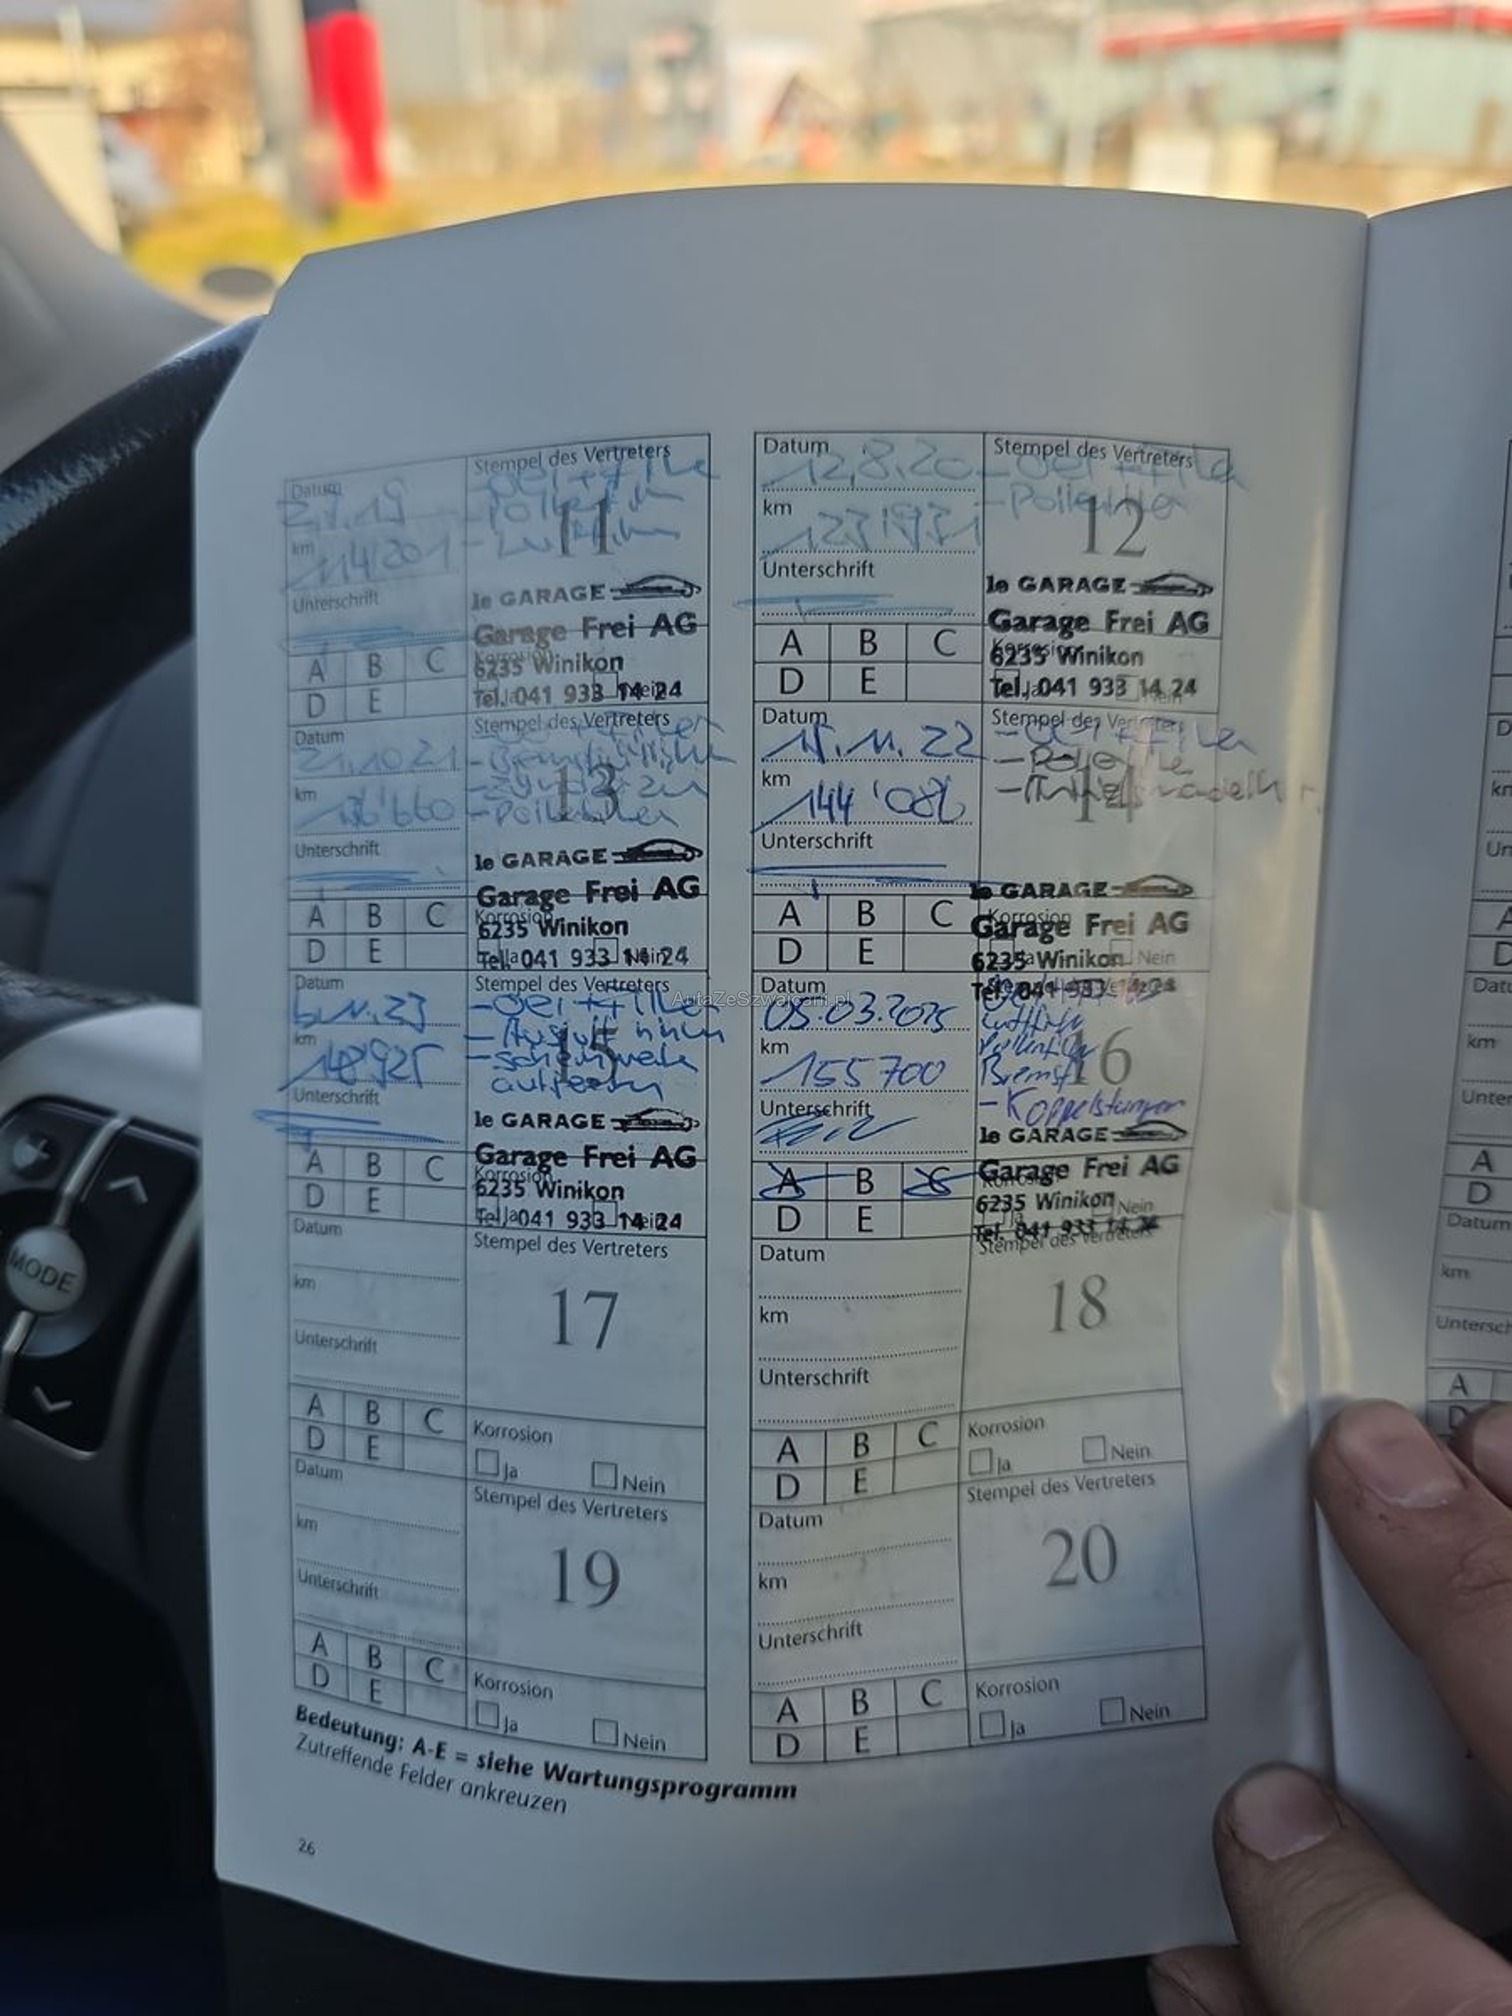 Datum
Stempel des Vertreters
11
km
114'201
Unterschrift
le GARAGE
Garage Frei AG
6235 Winikon
Tel. 041 933 14 24
A B C
D E
Datum
12.8.20
Stempel des Vertreters
- Oel + Filter
- Pollenfilter
12
km
Unterschrift
le GARAGE
Garage Frei AG
6235 Winikon
Tel. 041 933 14 24
A B C
D E
Datum
21.10.21
Stempel des Vertreters
13
- Pollenfilter
km
Unterschrift
le GARAGE
Garage Frei AG
Korrosion
6235 Winikon
Tel. 041 933 14 24
A B C
D E
Datum
15.11.22
Stempel des Vertreters
- Oel + Filter
14
km
144'086
Unterschrift
le GARAGE
Korrosion
Garage Frei AG
6235 Winikon
Nein
Tel. 041 933 14 24
A B C
D E
Datum
6.11.23
Stempel des Vertreters
- Oel + Filter
15
km
Unterschrift
le GARAGE
Garage Frei AG
Korrosion
6235 Winikon
Tel. 041 933 14 24
A B C
D E
Datum
05.03.2025
16
km
155700
Luftfilter
Pollenfilter
Bremsfl
- Koppelstangen
Unterschrift
le GARAGE
Garage Frei AG
6235 Winikon
Nein
Tel. 041 933 14 24
A B C
D E
AutaZeSzwajcarii.pl
Datum
Stempel des Vertreters
17
km
Unterschrift
A B C
D E
Korrosion
Ja Nein
Datum
Stempel des Vertreters
18
km
Unterschrift
A B C
D E
Korrosion
Ja Nein
Datum
Stempel des Vertreters
19
km
Unterschrift
A B C
D E
Korrosion
Ja Nein
Datum
Stempel des Vertreters
20
km
Unterschrift
A B C
D E
Korrosion
Ja Nein
Bedeutung: A-E = siehe Wartungsprogramm
Zutreffende Felder ankreuzen
26
MODE
km
Unter
A
D
Datum
km
Untersch
A